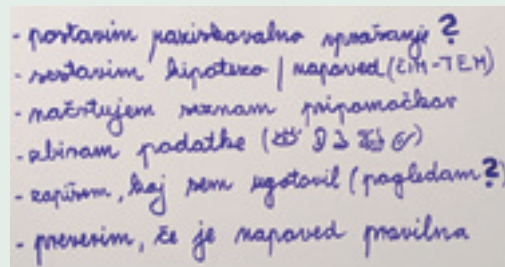 - postavim raziskovalno vprašanje ?
- sestavim hipotezo / napoved (ČIM-TEM)
- načrtujem seznam pripomočkov
- zbiram podatke (
- zapišem, kaj sem ugotovil (pogledam ?)
- preverim, če je napoved pravilna